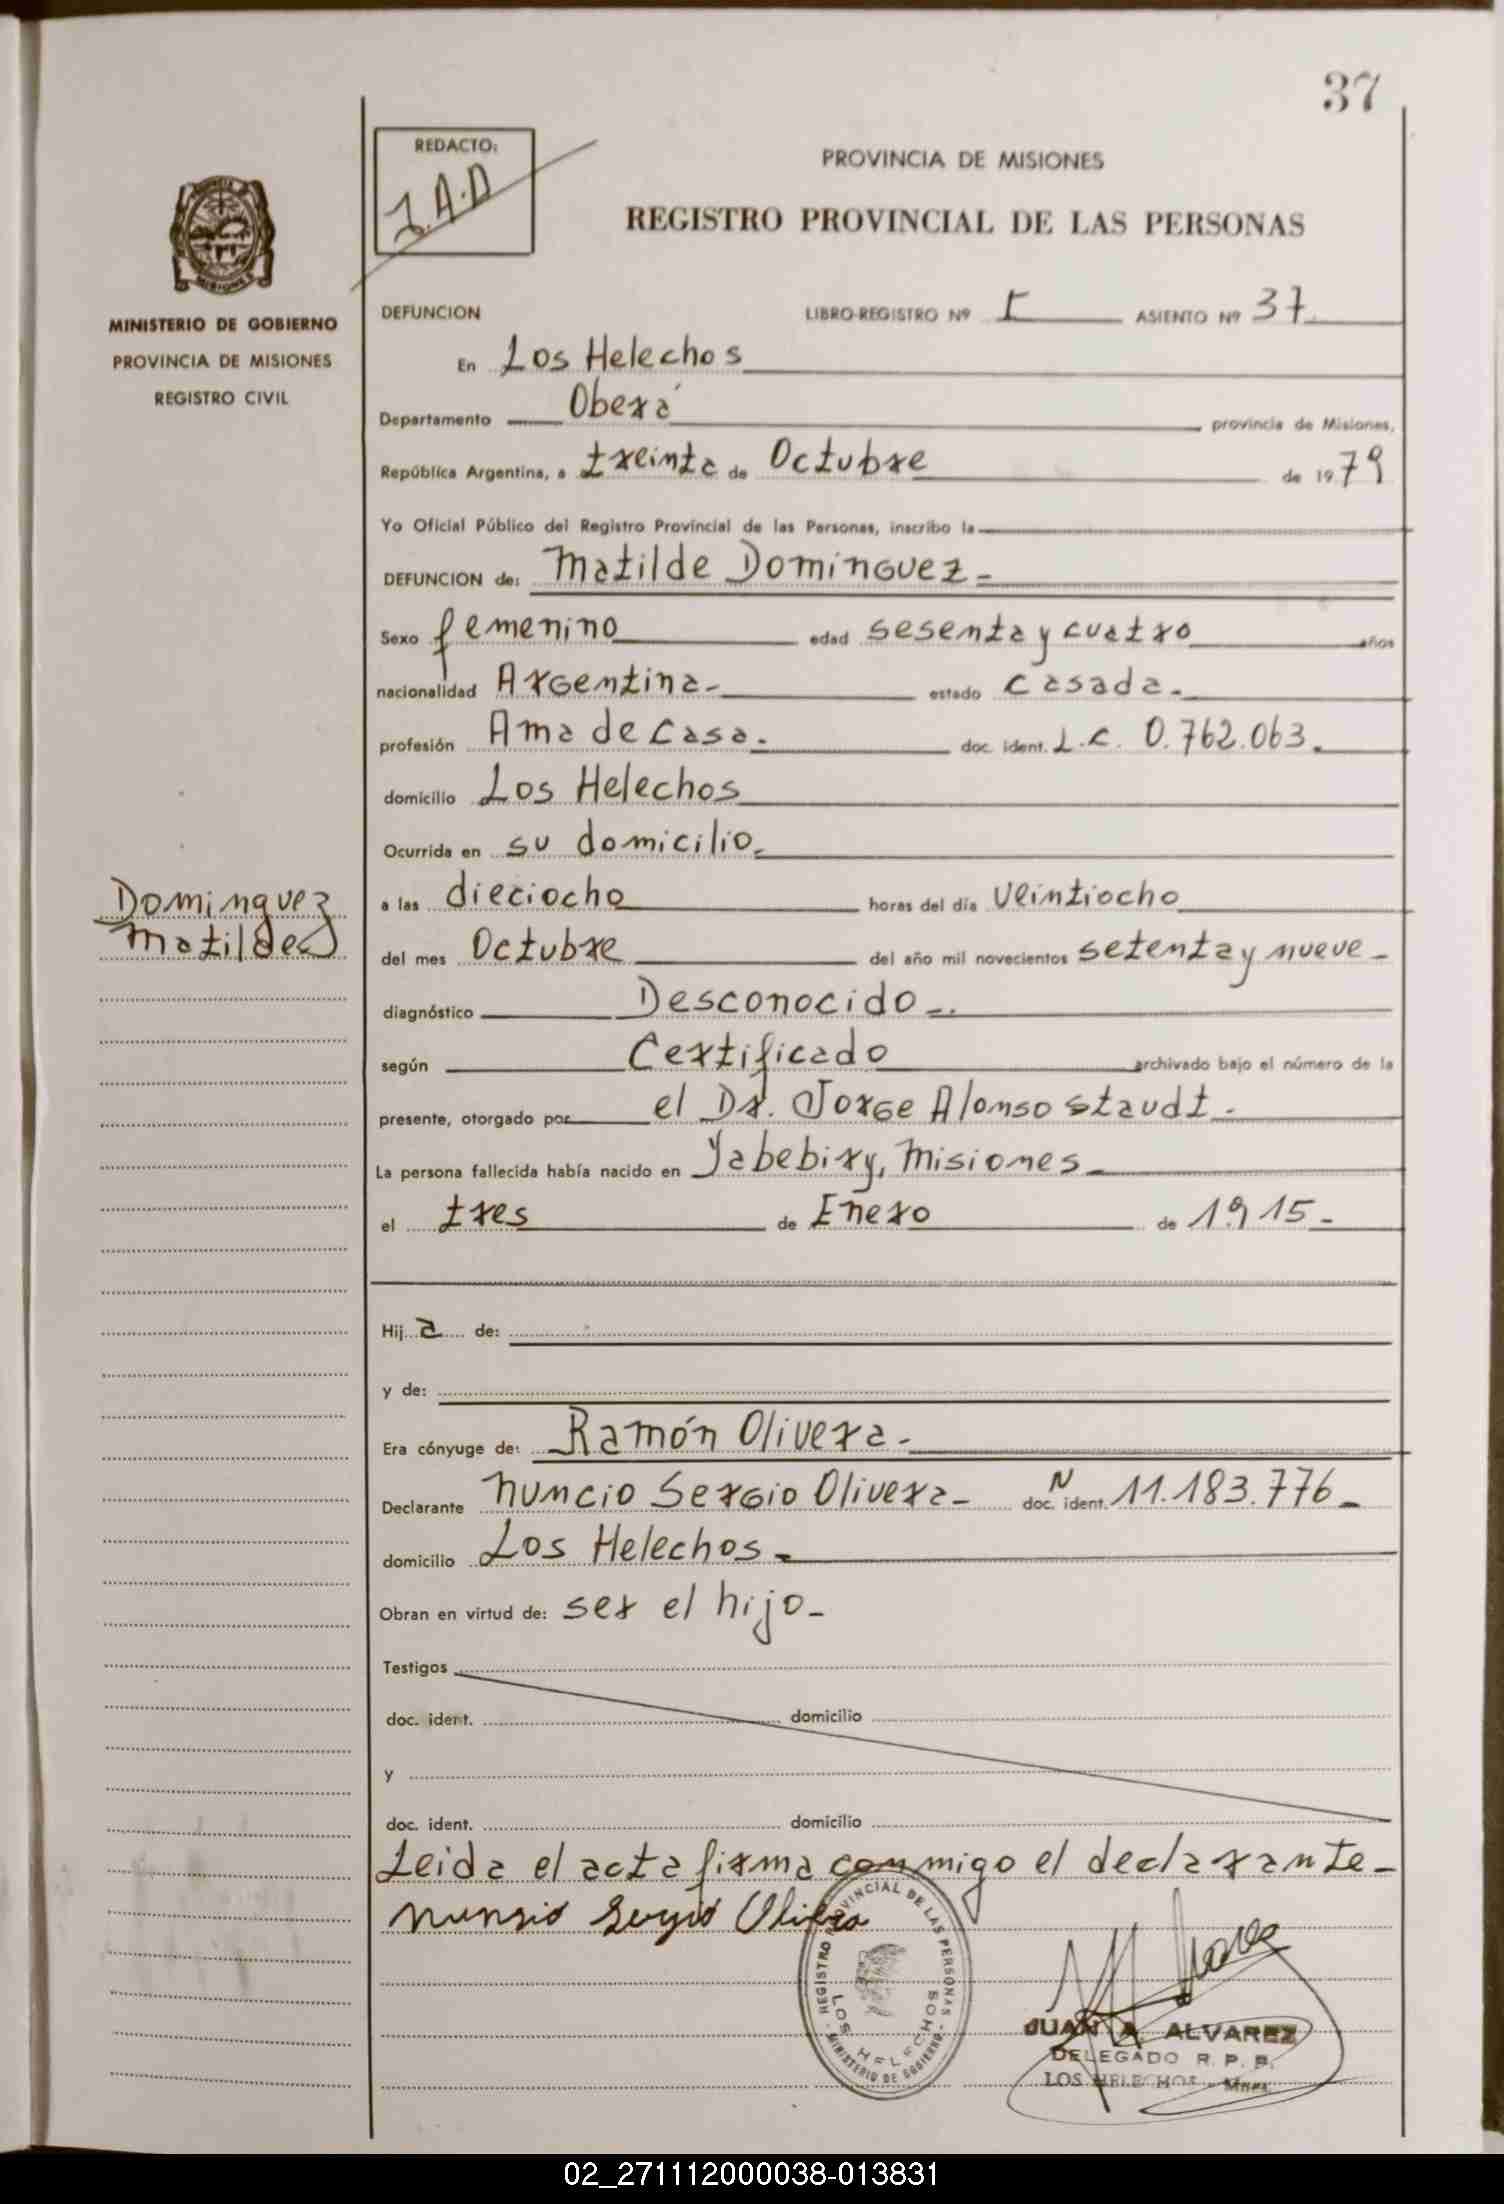 37
REDACTO:
J.A.D
PROVINCIA DE MISIONES
REGISTRO PROVINCIAL DE LAS PERSONAS
MINISTERIO DE GOBIERNO
PROVINCIA DE MISIONES
REGISTRO CIVIL
DEFUNCION LIBRO-REGISTRO Nº I ASIENTO Nº 37
En Los Helechos
Departamento Oberá provincia de Misiones,
República Argentina, a treinta de Octubre de 1979
Yo Oficial Público del Registro Provincial de las Personas, inscribo la
DEFUNCION de: Matilde Dominguez
Sexo femenino edad sesenta y cuatro años
nacionalidad Argentina estado casada.
profesión Ama de casa. doc. ident. L.C. 0.762.063.
domicilio Los Helechos
Ocurrida en su domicilio
Dominguez
Matilde
a las dieciocho horas del día veintiocho
del mes Octubre del año mil novecientos setenta y nueve
diagnóstico Desconocido
según Certificado archivado bajo el número de la
presente, otorgado por el Dr. Jorge Alonso Staudt
La persona fallecida había nacido en Yabebiry, Misiones
el tres de Enero de 1915
Hija de:
y de:
Era cónyuge de: Ramón Olivera
Declarante Nuncio Sergio Olivera doc. ident. N 11.183.776
domicilio Los Helechos
Obran en virtud de: ser el hijo
Testigos
doc. ident. domicilio
y
doc. ident. domicilio
Leida el acta firma conmigo el declarante
Nunsio Sergio Olivera
REGISTRO PROVINCIAL DE LAS PERSONAS
LOS HELECHOS
MINISTERIO DE GOBIERNO
JUAN A. ALVAREZ
DELEGADO R. P. P.
LOS HELECHOS - Mnes.
02_271112000038-013831